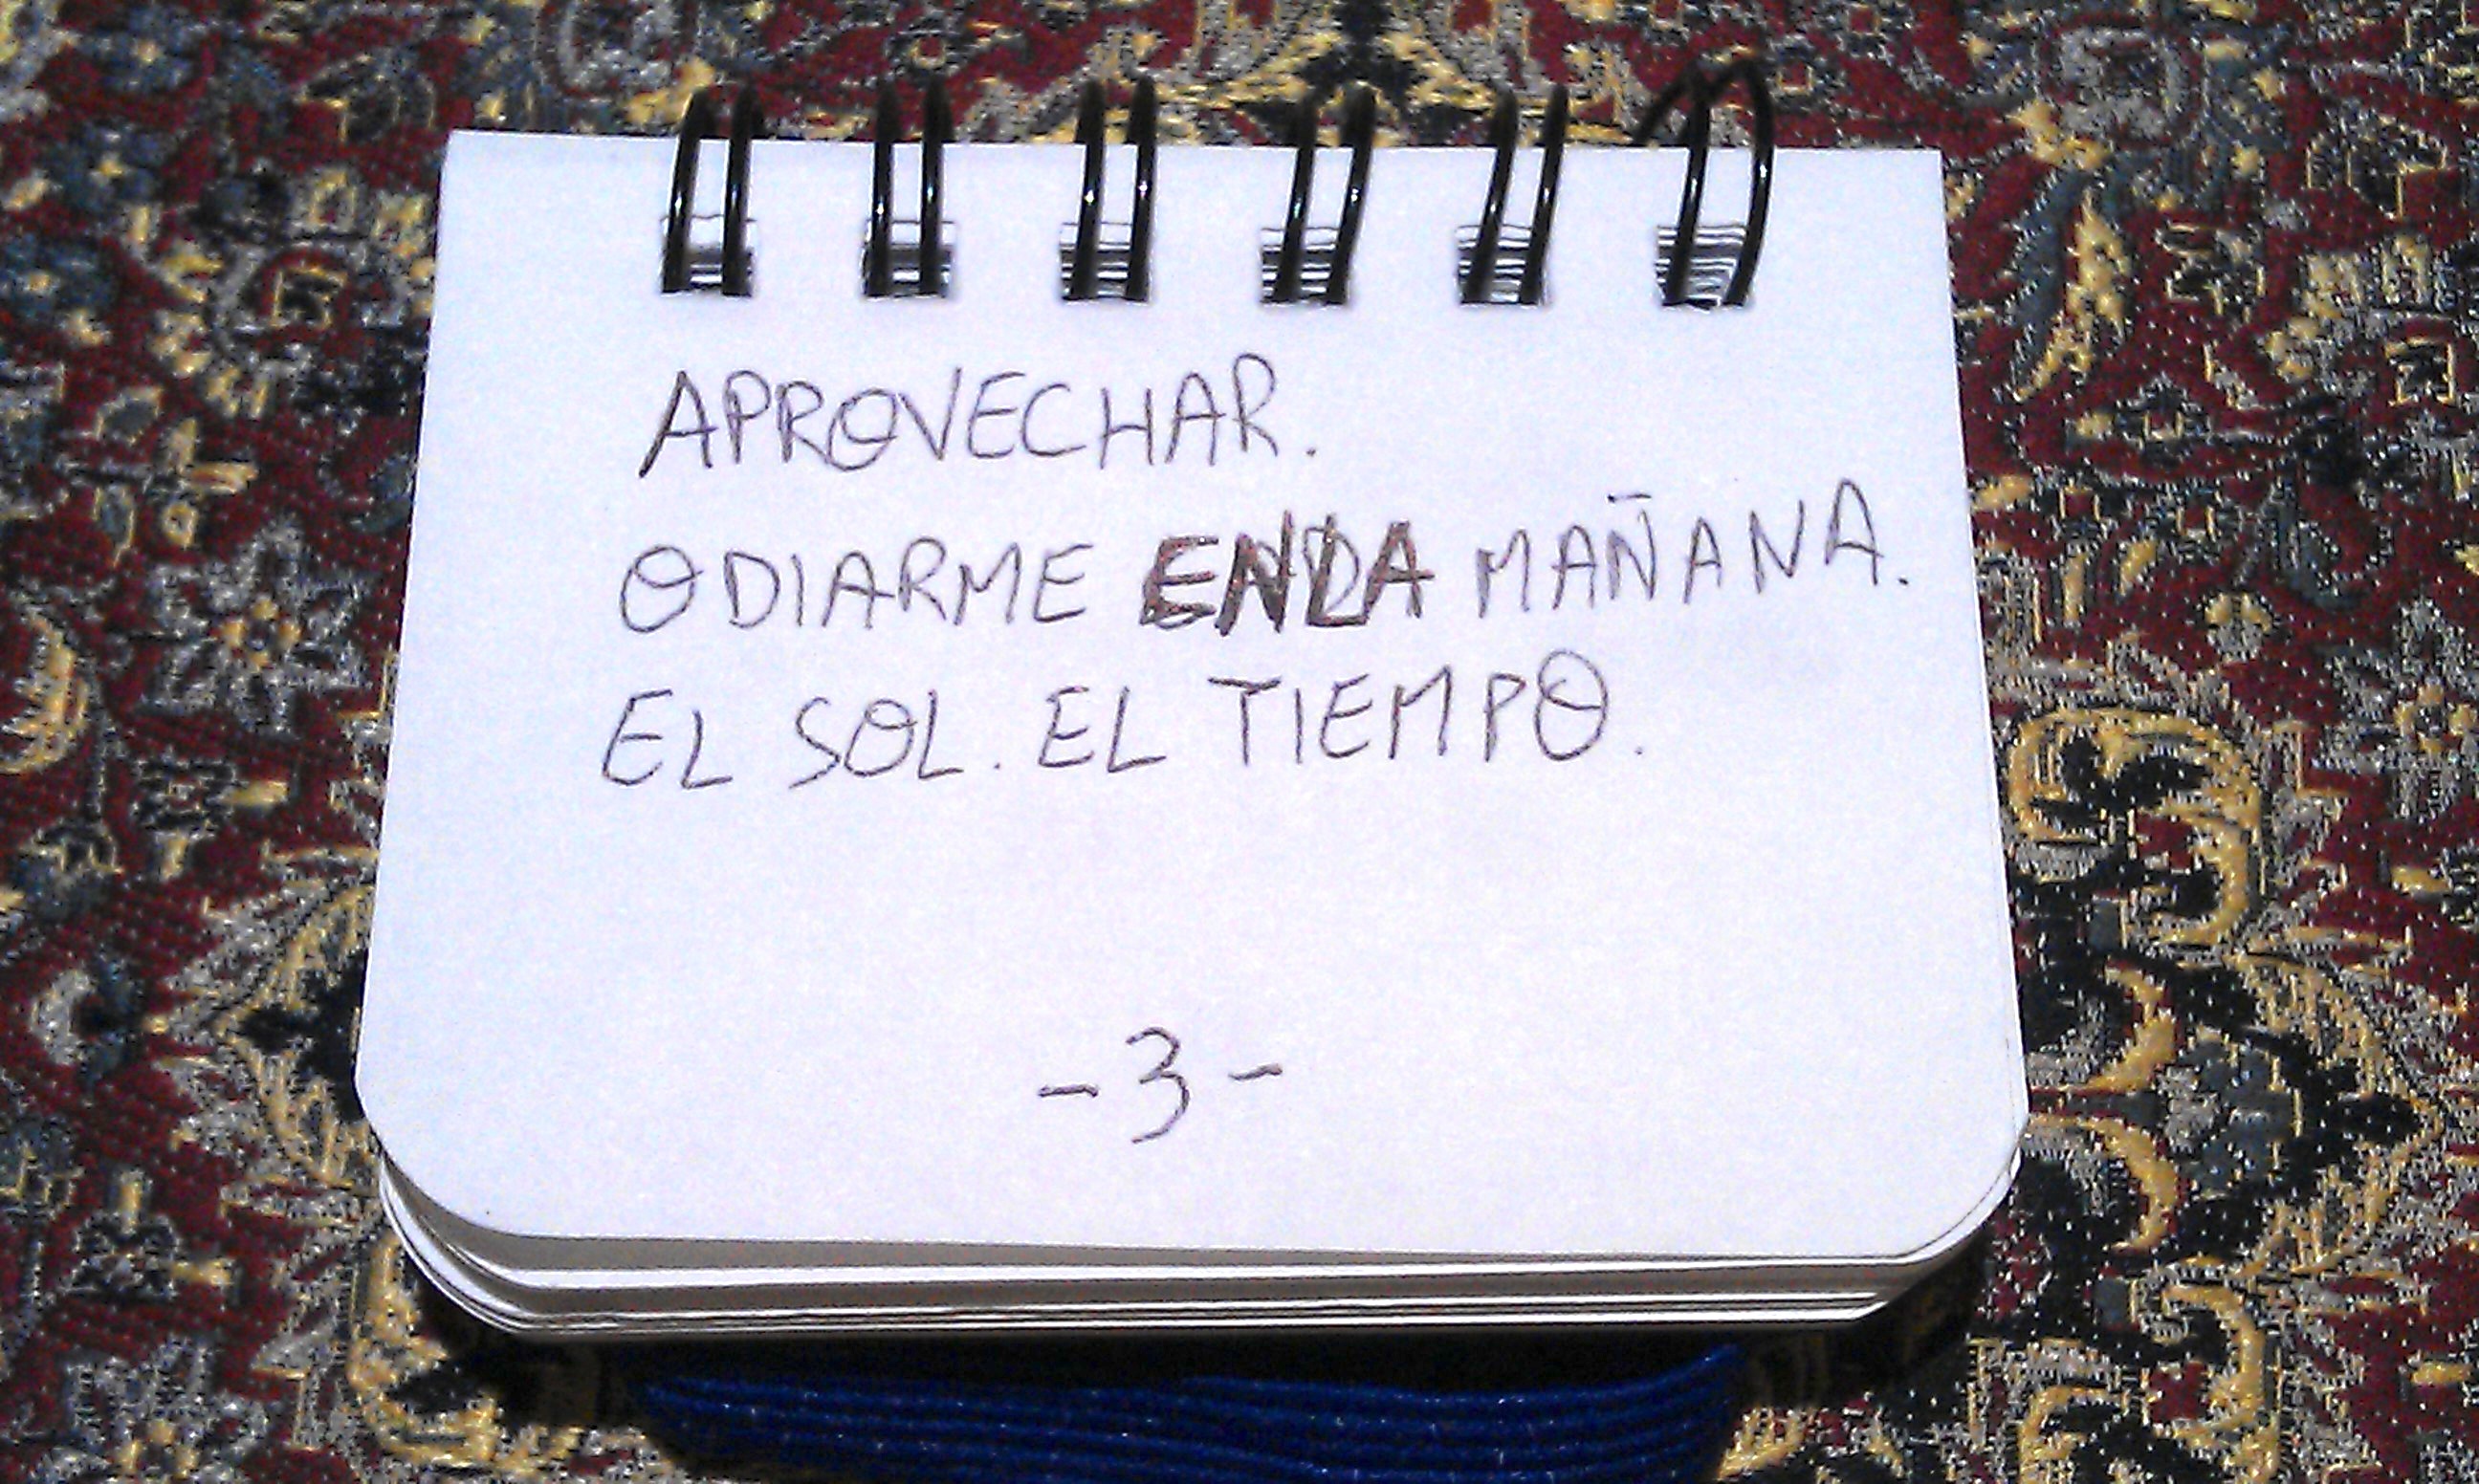 APROVECHAR.
ODIARME EN LA MAÑANA.
EL SOL. EL TIEMPO.
-3-